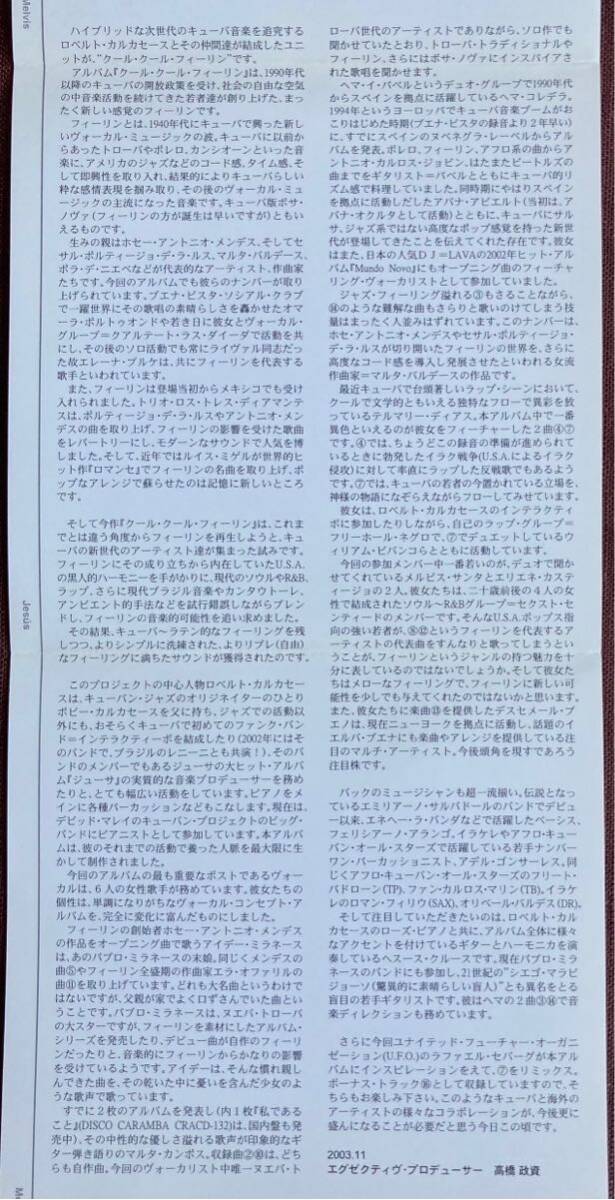 Melvis
Jesús
ハイブリッドな次世代のキューバ音楽を追究する
ロベルト・カルカセースとその仲間達が結成したユニ
ットが、“クール・クール・フィーリン”です。
アルバム『クール・クール・フィーリン』は、1990年代
以降のキューバの開放政策を受け、社会の自由な空気
の中音楽活動を続けてきた若者達が創り上げた、まっ
たく新しい感覚のフィーリンです。
フィーリンとは、1940年代にキューバで興った新し
いヴォーカル・ミュージックの波。キューバに以前か
らあったトローバやボレロ、カンシオーンといった音
楽に、アメリカのジャズなどのコード感、タイム感、そ
して即興性を取り入れ、結果的によりキューバらしい
粋な感情表現を掴み取り、その後のヴォーカル・ミュ
ージックの主流になった音楽です。キューバ版ボサ・
ノヴァ（フィーリンの方が誕生は早いですが）ともい
えるものです。
生みの親はホセー・アントニオ・メンデス、そしてセ
サル・ポルティージョ・デ・ラ・ルス。マルタ・バルデース、
ボラ・デ・ニエベなどが代表的なアーティスト、作曲家
たちです。今回のアルバムでも彼らのナンバーが取り
上げられています。ブエナ・ビスタ・ソシアル・クラブ
で一躍世界にその歌唱の素晴らしさを轟かせたオマ
ーラ・ポルトゥオンドや若き日に彼女とヴォーカル・
グループ=クアルテート・ラス・ダイーダで活動を共
にし、その後のソロ活動でも常にライヴァル同志だっ
た故エレーナ・ブルケは、共にフィーリンを代表する
歌手といわれています。
また、フィーリンは登場当初からメキシコでも受け
入れられました。トリオ・ロス・トレス・ディアマンテ
スは、ポルティージョ・デ・ラ・ルスやアントニオ・メン
デスの曲を取り上げ、フィーリンの影響を受けた歌曲
をレパートリーにし、モダーンなサウンドで人気を博
しました。そして、近年ではルイス・ミゲルが世界的ヒ
ット作『ロマンセ』でフィーリンの名曲を取り上げ、ポ
ップなアレンジで蘇らせたのは記憶に新しいところ
です。
そして今作『クール・クール・フィーリン』は、これま
でとは違う角度からフィーリンを再生しようと、キュ
ーバの新世代のアーティスト達が集まった試みです。
フィーリンにその成り立ちから内在していたU.S.A.
の黒人的ハーモニーを手がかりに、現代のソウルやR&B、
ラップ、さらに現代ブラジル音楽やカンタウトーレ、
アンビエント的手法などを試行錯誤しながらブレン
ドし、フィーリンの音楽的可能性を追い求めました。
その結果、キューバ〜ラテン的なフィーリングを残
しつつ、よりシンプルに洗練された、よりリブレ（自由）
なフィーリングに満ちたサウンドが獲得されたのです。
このプロジェクトの中心人物ロベルト・カルカセー
スは、キューバン・ジャズのオリジネイターのひとり
ボビー・カルカセースを父に持ち、ジャズでの活動以
外にも、おそらくキューバで初めてのファンク・バン
ド=インテラクティーボを結成したり（2002年にはそ
のバンドで、ブラジルのレニーニとも共演！）、そのバ
ンドのメンバーでもあるジューサの大ヒット・アルバ
ム『ジューサ』の実質的な音楽プロデューサーを務め
たりと、とても幅広い活動をしています。ピアノをメ
インに各種パーカッションなどもこなします。現在は、
デビッド・マレイのキューバン・プロジェクトのビッグ・
バンドにピアニストとして参加しています。本アルバ
ムは、彼のそれまでの活動で養った人脈を最大限に生
かして制作されました。
今回のアルバムの最も重要なポストであるヴォー
カルは、6人の女性歌手が務めています。彼女たちの
個性は、単調になりがちなヴォーカル・コンセプト・ア
ルバムを、完全に変化に富んだものにしました。
フィーリンの創始者ホセー・アントニオ・メンデス
の作品をオープニング曲で歌うアイデー・ミラネース
は、あのパブロ・ミラネースの末娘。同じくメンデスの
曲⑤やフィーリン全盛期の作曲家エラ・オファリルの
曲⑪を取り上げています。どれも大名曲というわけで
はないですが、父親が家でよく口ずさんでいた曲とい
うことです。パブロ・ミラネースは、ヌエバ・トローバ
の大スターですが、フィーリンを素材にしたアルバム・
シリーズを発売したり、デビュー曲が自作のフィーリ
ンだったりと、音楽的にフィーリンからかなりの影響
を受けているようです。アイデーは、そんな慣れ親し
んできた曲を、その乾いた中に憂いを含んだ少女のよ
うな歌声で歌っています。
すでに2枚のアルバムを発表し（内1枚『私であるこ
と』(DISCO CARAMBA CRACD-132)は、国内盤も発
売中）、その中性的な優しさ溢れる歌声が印象的なギ
ター弾き語りのマルタ・カンポス。収録曲②⑩は、どち
らも自作曲。今回のヴォーカリスト中唯一ヌエバ・ト
ローバ世代のアーティストでありながら、ソロ作でも
聞かせていたとおり、トローバ・トラディショナルや
フィーリン、さらにはボサ・ノヴァにインスパイアさ
れた歌唱を聞かせます。
ヘマ・イ・パベルというデュオ・グループで1990年代
からスペインを拠点に活躍しているヘマ・コレデラ。
1994年というヨーロッパでキューバ音楽ブームがお
こりはじめた時期（ブエナ・ビスタの録音より2年早い）
に、すでにスペインのヌベネグラ・レーベルからアルバ
ムを発表。ボレロ、フィーリン、アフロ系の曲からアン
トニオ・カルロス・ジョビン、はたまたビートルズの
曲までをギタリスト=パベルとともにキューバ的リ
ズム感で料理していました。同時期にやはりスペイン
を拠点に活動しだしたアバナ・アビエルト（当初は、ア
バナ・オクルタとして活動）とともに、キューバにサル
サ、ジャズ系ではない高度なポップ感覚を持った新世
代が登場してきたことを伝えてくれた存在です。彼女
はまた、日本の人気DJ=LAVAの2002年ヒット・アル
バム『Mundo Novo』にもオープニング曲のフィーチャ
リング・ヴォーカリストとして参加していました。
ジャズ・フィーリング溢れる③もさることながら、
⑭のような難解な曲もさらりと歌いのけてしまう技
量はまったく人並みはずれています。このナンバーは、
ホセ・アントニオ・メンデスやセサル・ポルティージョ・
デ・ラ・ルスが切り開いたフィーリンの世界を、さらに
高度なコード感を導入し発展させたといわれる女流
作曲家=マルタ・バルデースの作品です。
最近キューバで台頭著しいラップ・シーンにおいて、
クールで文学的ともいえる独特なフロートで異彩を放
っているテルマリー・ディアス。本アルバム中で一番
異色といえるのが彼女をフィーチャーした2曲④⑦
です。④では、ちょうどこの録音の準備が進められて
いるときに勃発したイラク戦争（U.S.A.によるイラク
侵攻）に対して率直にラップした反戦歌でもあるよう
です。⑦では、キューバの若者の今置かれている立場を、
神様の物語になぞらえながらフローしてみせています。
彼女は、ロベルト・カルカセースのインテラクティ
ボに参加したりしながら、自己のラップ・グループ=
フリーホール・ネグロで、⑦でデュエットしているウ
ィリアム・ビバンコらとともに活動しています。
今回の参加メンバー中一番若いのが、デュオで聞か
せてくれているメルビス・サンタとエリエネ・カスティ
ージョの2人。彼女たちは、二十歳前後の4人の女
性で結成されたソウル〜R&Bグループ=セクスト・セ
ンティードのメンバーです。そんなU.S.A.ポップス指
向の強い若者が、⑧⑫というフィーリンを代表するア
ーティストの代表曲をすんなりと歌ってしまうとい
うことが、フィーリンというジャンルの持つ魅力を十
分に表しているのではないでしょうか。そして彼女た
ちはメローなフィーリングで、フィーリンに新しい可
能性を少しでも与えてくれたのではないかと思います。
また、彼女たちに楽曲⑬を提供したデスセメール・ブ
エノは、現在ニューヨークを拠点に活動し、話題のイ
エルバ・ブエナにも楽曲やアレンジを提供している注
目のマルチ・アーティスト。今後頭角を現すであろう
注目株です。
バックのミュージシャンも超一流揃い。伝説となっ
ているエミリアーノ・サルバドールのバンドでデビュ
ー以来、エネヘー・ラ・バンダなどで活躍したベーシス、
フェリシアーノ・アランゴ、イラケレやアフロ・キュー
バン・オール・スターズで活躍している若手ナンバー
ワン・パーカッショニスト、アデル・ゴンサーレス、同
じくアフロ・キューバン・オール・スターズのフリート・
パドローン(TP)、ファン・カルロス・マリン(TB)。イラケ
レのロマン・フィリウ(SAX)、オリベール・バルデス(DR)。
そして注目していただきたいのは、ロベルト・カル
カセースのローズ・ピアノと共に、アルバム全体に様々
なアクセントを付けているギターとハーモニカを演
奏しているヘスース・クルースです。現在パブロ・ミラ
ネースのバンドにも参加し、21世紀の“シエゴ・マラビ
ジョーソ（驚異的に素晴らしい盲人）”とも異名をとる
盲目の若手ギタリストです。彼はヘマの2曲③⑭で音
楽ディレクションも務めています。
さらに今回ユナイテッド・フューチャー・オーガニ
ゼーション(U.F.O.)のラファエル・セバーグが本アル
バムにインスピレーションをえて、⑦をリミックス。
ボーナス・トラック⑯として収録していますので、そ
ちらもお楽しみ下さい。このようなキューバと海外の
アーティストの様々なコラボレーションが、今後更に
盛んになることが必要だと思う今日この頃です。
2003.11
エグゼクティヴ・プロデューサー　高橋 政資